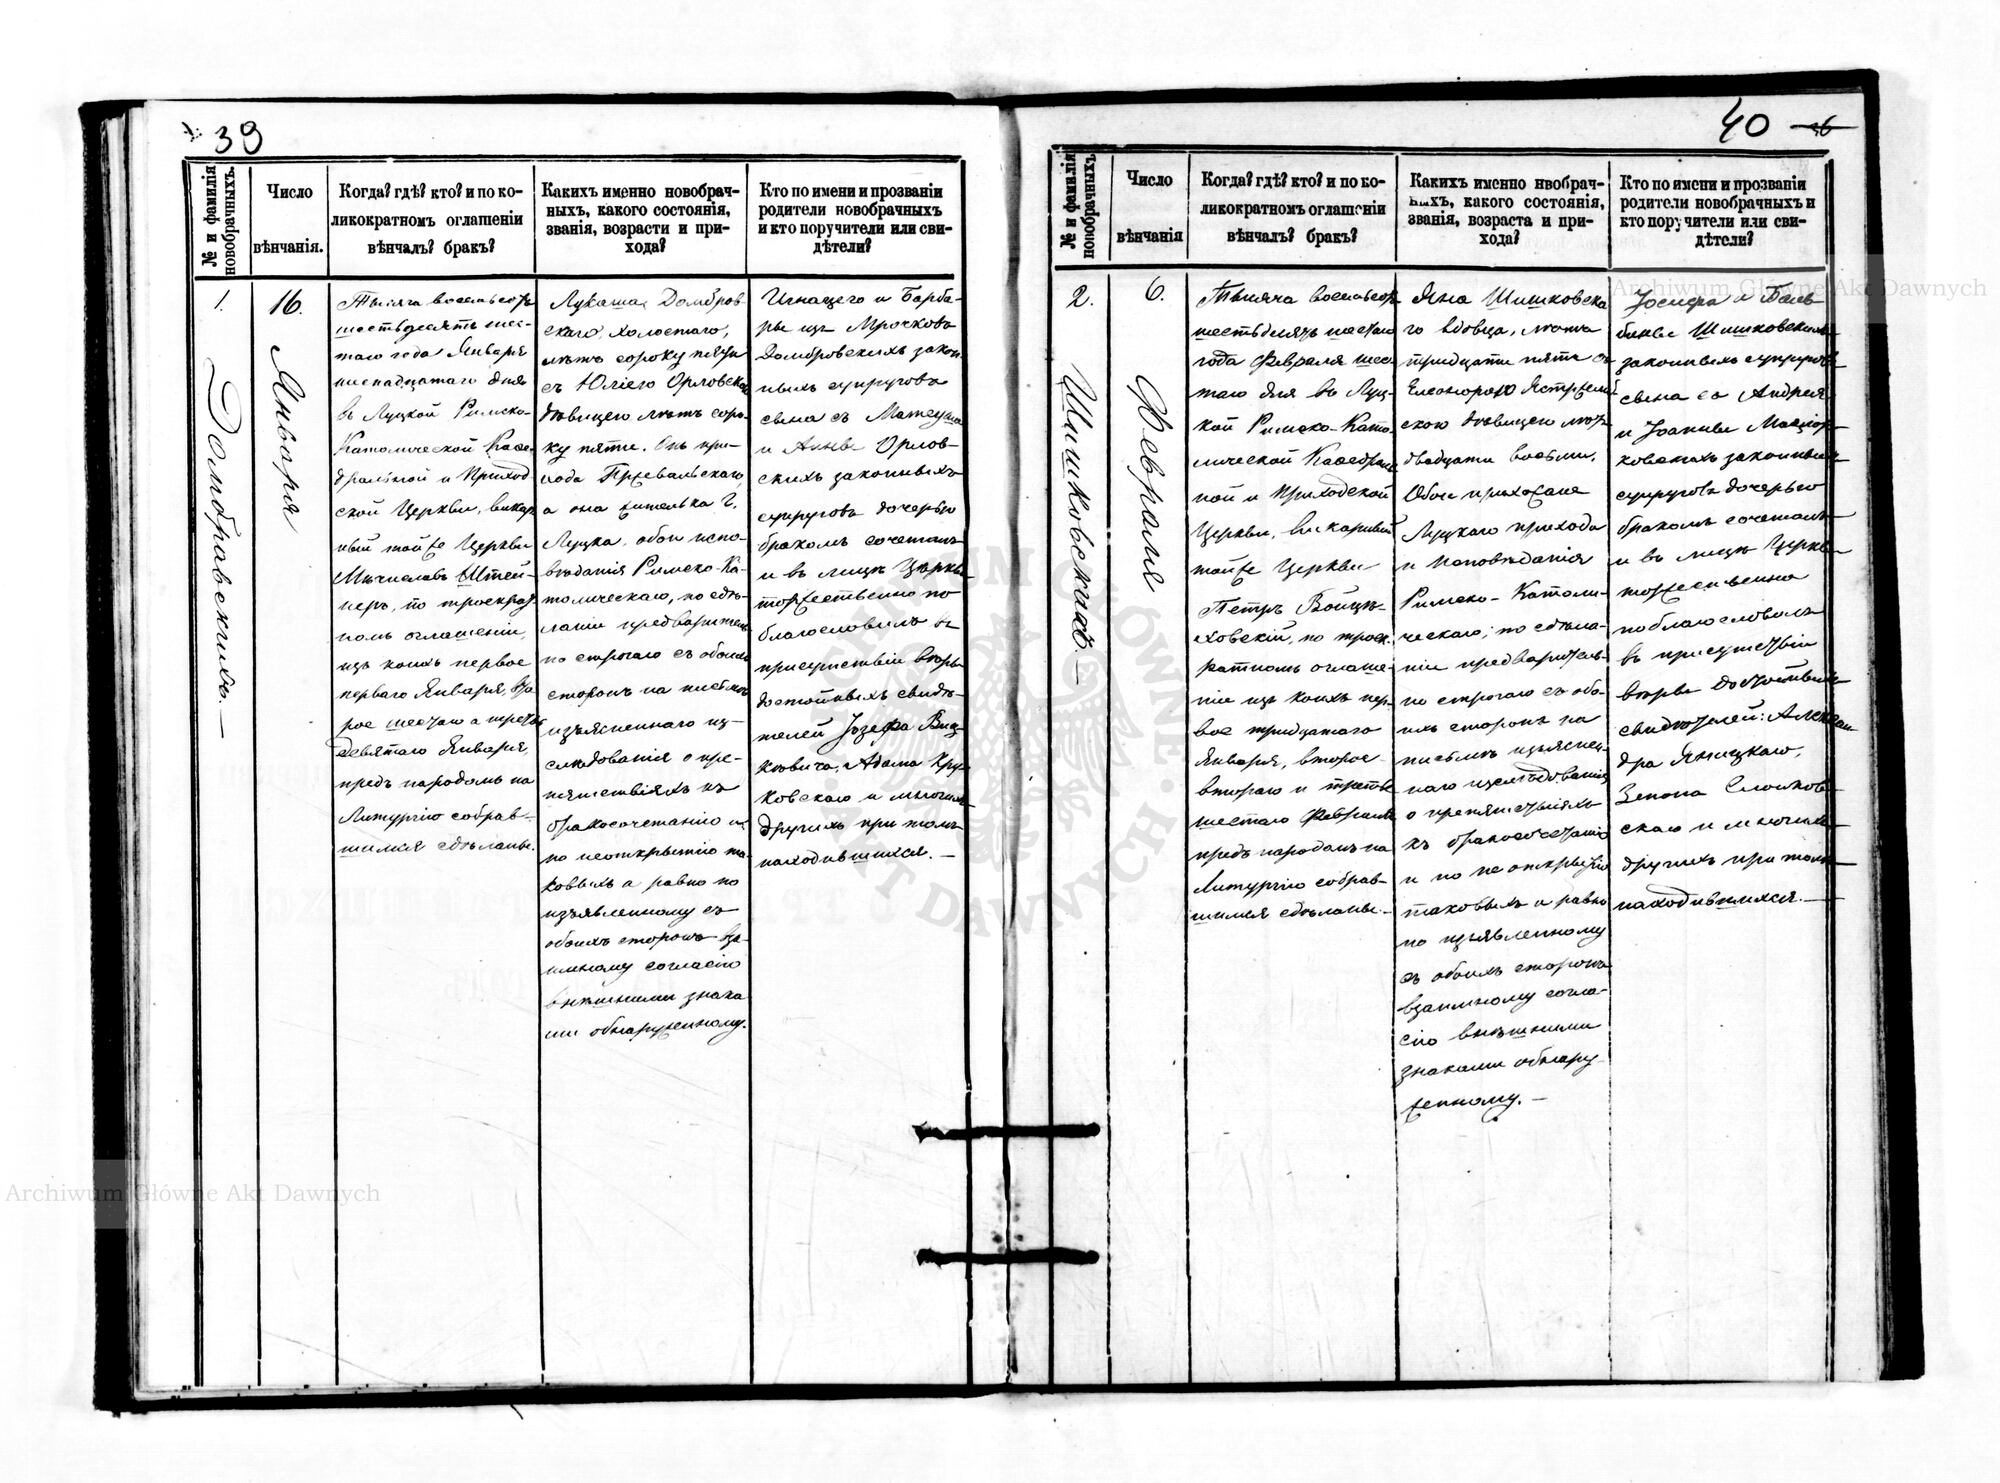 39
№ и фамилія новобрачныхъ.
Число вѣнчанія.
Когда? гдѣ? кто? и по ко-
ликократномъ оглашеніи
вѣнчалъ? бракъ?
Какихъ именно новобрач-
ныхъ, какого состоянія,
званія, возрасти и при-
хода?
Кто по имени и прозваніи
родители новобрачныхъ
и кто поручители или сви-
дѣтели?
1.
Домбравскихъ.—
16.
Января
Тысяча восемьсотъ
шестьдесятъ шес-
таго года Января
шестнадцатаго дня
въ Луцкой Римско-
Католической Кафе
дральной и Приход
ской Церкви, викар
ный тойже Церкви
Мѣчиславъ Штей-
перъ, по троекрат
номъ оглашеніи,
изъ коихъ первое
перваго Января, вто
рое шестаго а третье
девятаго Января,
предъ народомъ на
Литургію собрав-
шимся сдѣланы.
Лукаша Домбров-
скаго, холостаго,
лѣтъ сороку пяти
съ Юліею Орловскою
дѣвицею лѣтъ соро-
ку пяти. Онъ при-
хода
а она жителька г.
Луцка, обои испо-
вѣданія Римско-Ка-
толическаго, по сдѣ-
ланіи предваритель
но строгаго съ обоихъ
сторонъ на письмѣ
изъясненнаго из-
слѣдованія о пре-
пятствіяхъ къ
бракосочетанію и
по неоткрытію та-
ковыхъ а равно по
изъявленному съ
обоихъ сторонъ вза-
имному согласію
внѣшними знака
ми обнаруженному.
Игнацего и Барба-
ры изъ Мрочковъ
Домбровскихъ закон-
ныхъ супруговъ
сына съ Матеуша
и Анны Орлов-
скихъ законныхъ
супруговъ дочерью
бракомъ сочеталъ
и въ лицѣ Церкви
торжественно по
благословилъ въ
присутствіи вѣры
достойныхъ свидѣ-
телей Іозефа Виц-
кевича, Адама Кру
ковскаго и многихъ
другихъ при томъ
находившихся.—
40
6
№ и фамилія новобрачныхъ.
Число вѣнчанія
Когда? гдѣ? кто? и по ко-
ликократномъ оглашеніи
вѣнчалъ? бракъ?
Какихъ именно нвобрач-
ныхъ, какого состоянія,
званія, возраста и при-
хода?
Кто по имени и прозваніи
родители новобрачныхъ и
кто поручители или сви-
дѣтели?
2.
Шишковскихъ.—
6.
Февраля
Тысяча восемьсотъ
шестьдесятъ шестаго
года Февраля шес-
таго дня въ Луц-
кой Римско-Като-
лической Кафедраль
ной и Приходской
Церкви, викарный
тойже Церкви
Петръ Войцѣ-
ховскій, по троек-
ратномъ оглаше-
ніи изъ коихъ пер-
вое тридцатаго
Января, второе
втораго и третье
шестаго Февраля
предъ народомъ на
Литургію собрав-
шимся сдѣланы.—
Яна Шишковска
го вдовца, лѣтъ
тридцати пяти съ
Елеонорою
скою дѣвицею лѣтъ
двадцати восьми.
Обои прихожане
Луцкаго прихода
и исповѣданія
Римско-Католи-
ческаго, по сдѣла-
ніи предваритель-
но строгаго съ обо-
ихъ сторонъ на
письмѣ изъяснен-
наго изслѣдованія
о препятствіяхъ
къ бракосочетанію
и по не открытію
таковыхъ а равно
по изъявленному
съ обоихъ сторонъ
взаимному согла-
сію внѣшними
знаками обнару-
женному.—
Іосифа и
Шишковскихъ
законныхъ супруговъ
сына съ Андрея
и Іоанны
ковскихъ законныхъ
супруговъ дочерью
бракомъ сочеталъ
и въ лицѣ Церкви
торжественно
поблагословилъ
въ присутствіи
вѣры достойныхъ
свидѣтелей: Алексан
дра Яницкаго,
Зенона
скаго и многихъ
другихъ при томъ
находившихся.—
Archiwum Główne Akt Dawnych
Archiwum Główne Akt Dawnych
ARCHIWUM GŁÓWNE AKT DAWNYCH